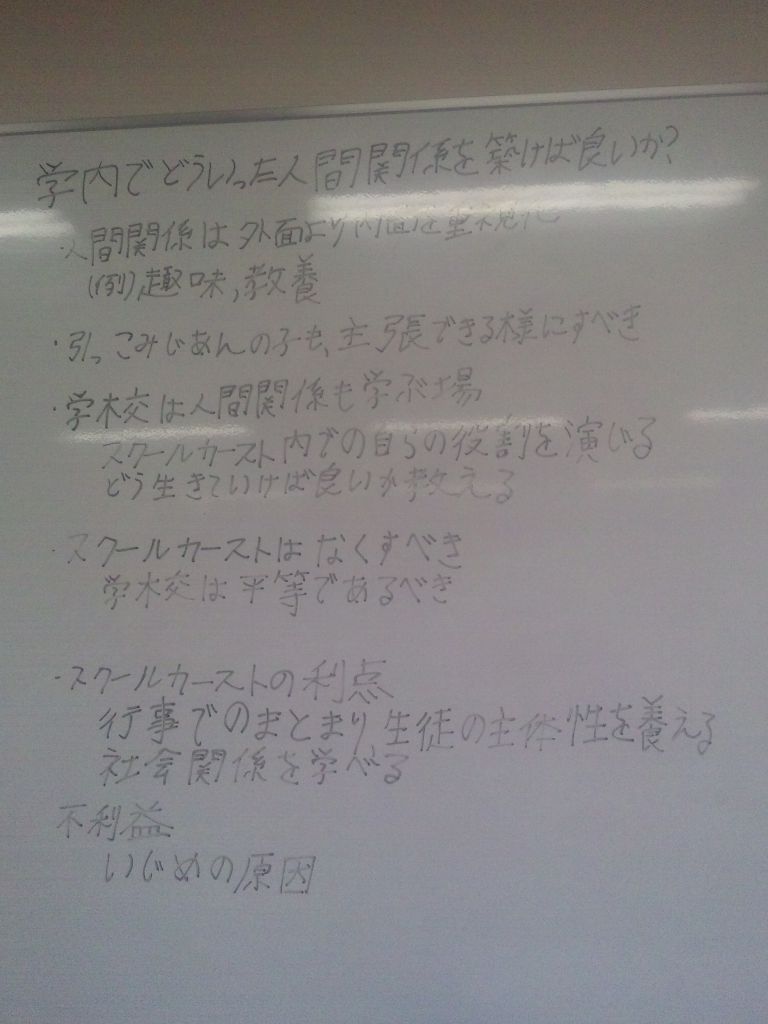 学内でどういった人間関係を築けば良いか?
・人間関係は外面より内面を重視化
(例)趣味,教養
・引っこみじあんの子も、主張できる様にすべき
・学校は人間関係も学ぶ場
スクールカースト内での自らの役割を演じる
どう生きていけば良いか教える
・スクールカーストはなくすべき
学校は平等であるべき
・スクールカーストの利点
行事でのまとまり生徒の主体性を養える
社会関係を学べる
不利益
いじめの原因